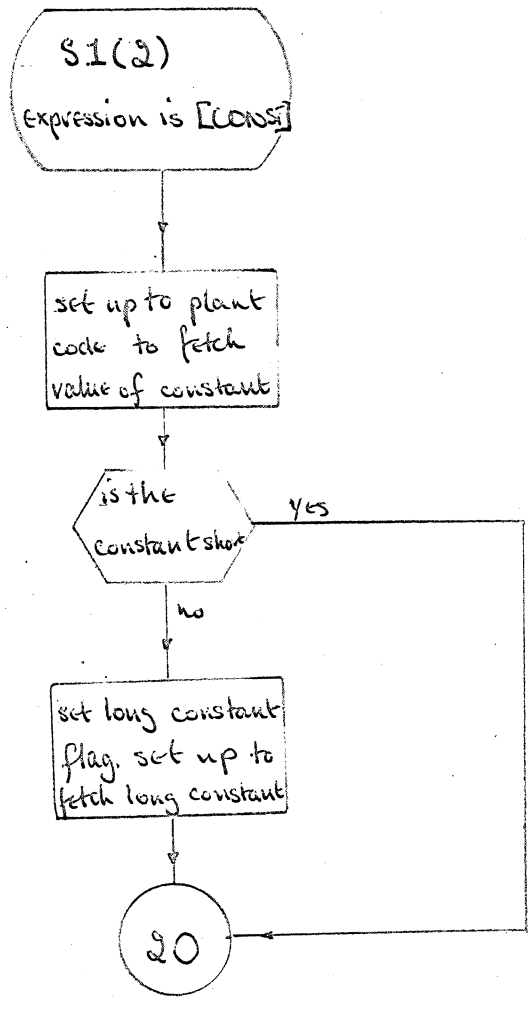 S1(2)
Expression is [CONST]
set up to plant
code to fetch
value of constant
is the
constant short
yes
no
set long constant
flag. set up to
fetch long constant
20